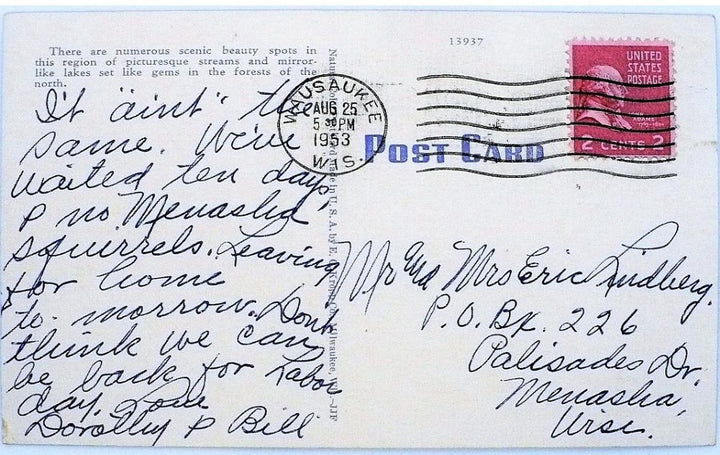 There are numerous scenic beauty spots in
this region of picturesque streams and mirror-
like lakes set like gems in the forests of the
north.
It "aint" the
same. We've
waited ten days,
& no Menasha
squirrels. Leaving
for home
to-morrow. Dont
think we can
be back for Labor
day. Love
Dorothy & Bill
made in U. S. A. by E. C. Kropp Co., Milwaukee, Wis.—JJF
WAUSAUKEE
AUG 25
5 30 PM
1953
WIS.
13937
POST CARD
UNITED
STATES
POSTAGE
ADAMS
2 CENTS 2
Mr and Mrs Eric Lindberg.
P.O. Bx. 226
Palisades Dr.
Menasha,
Wisc.